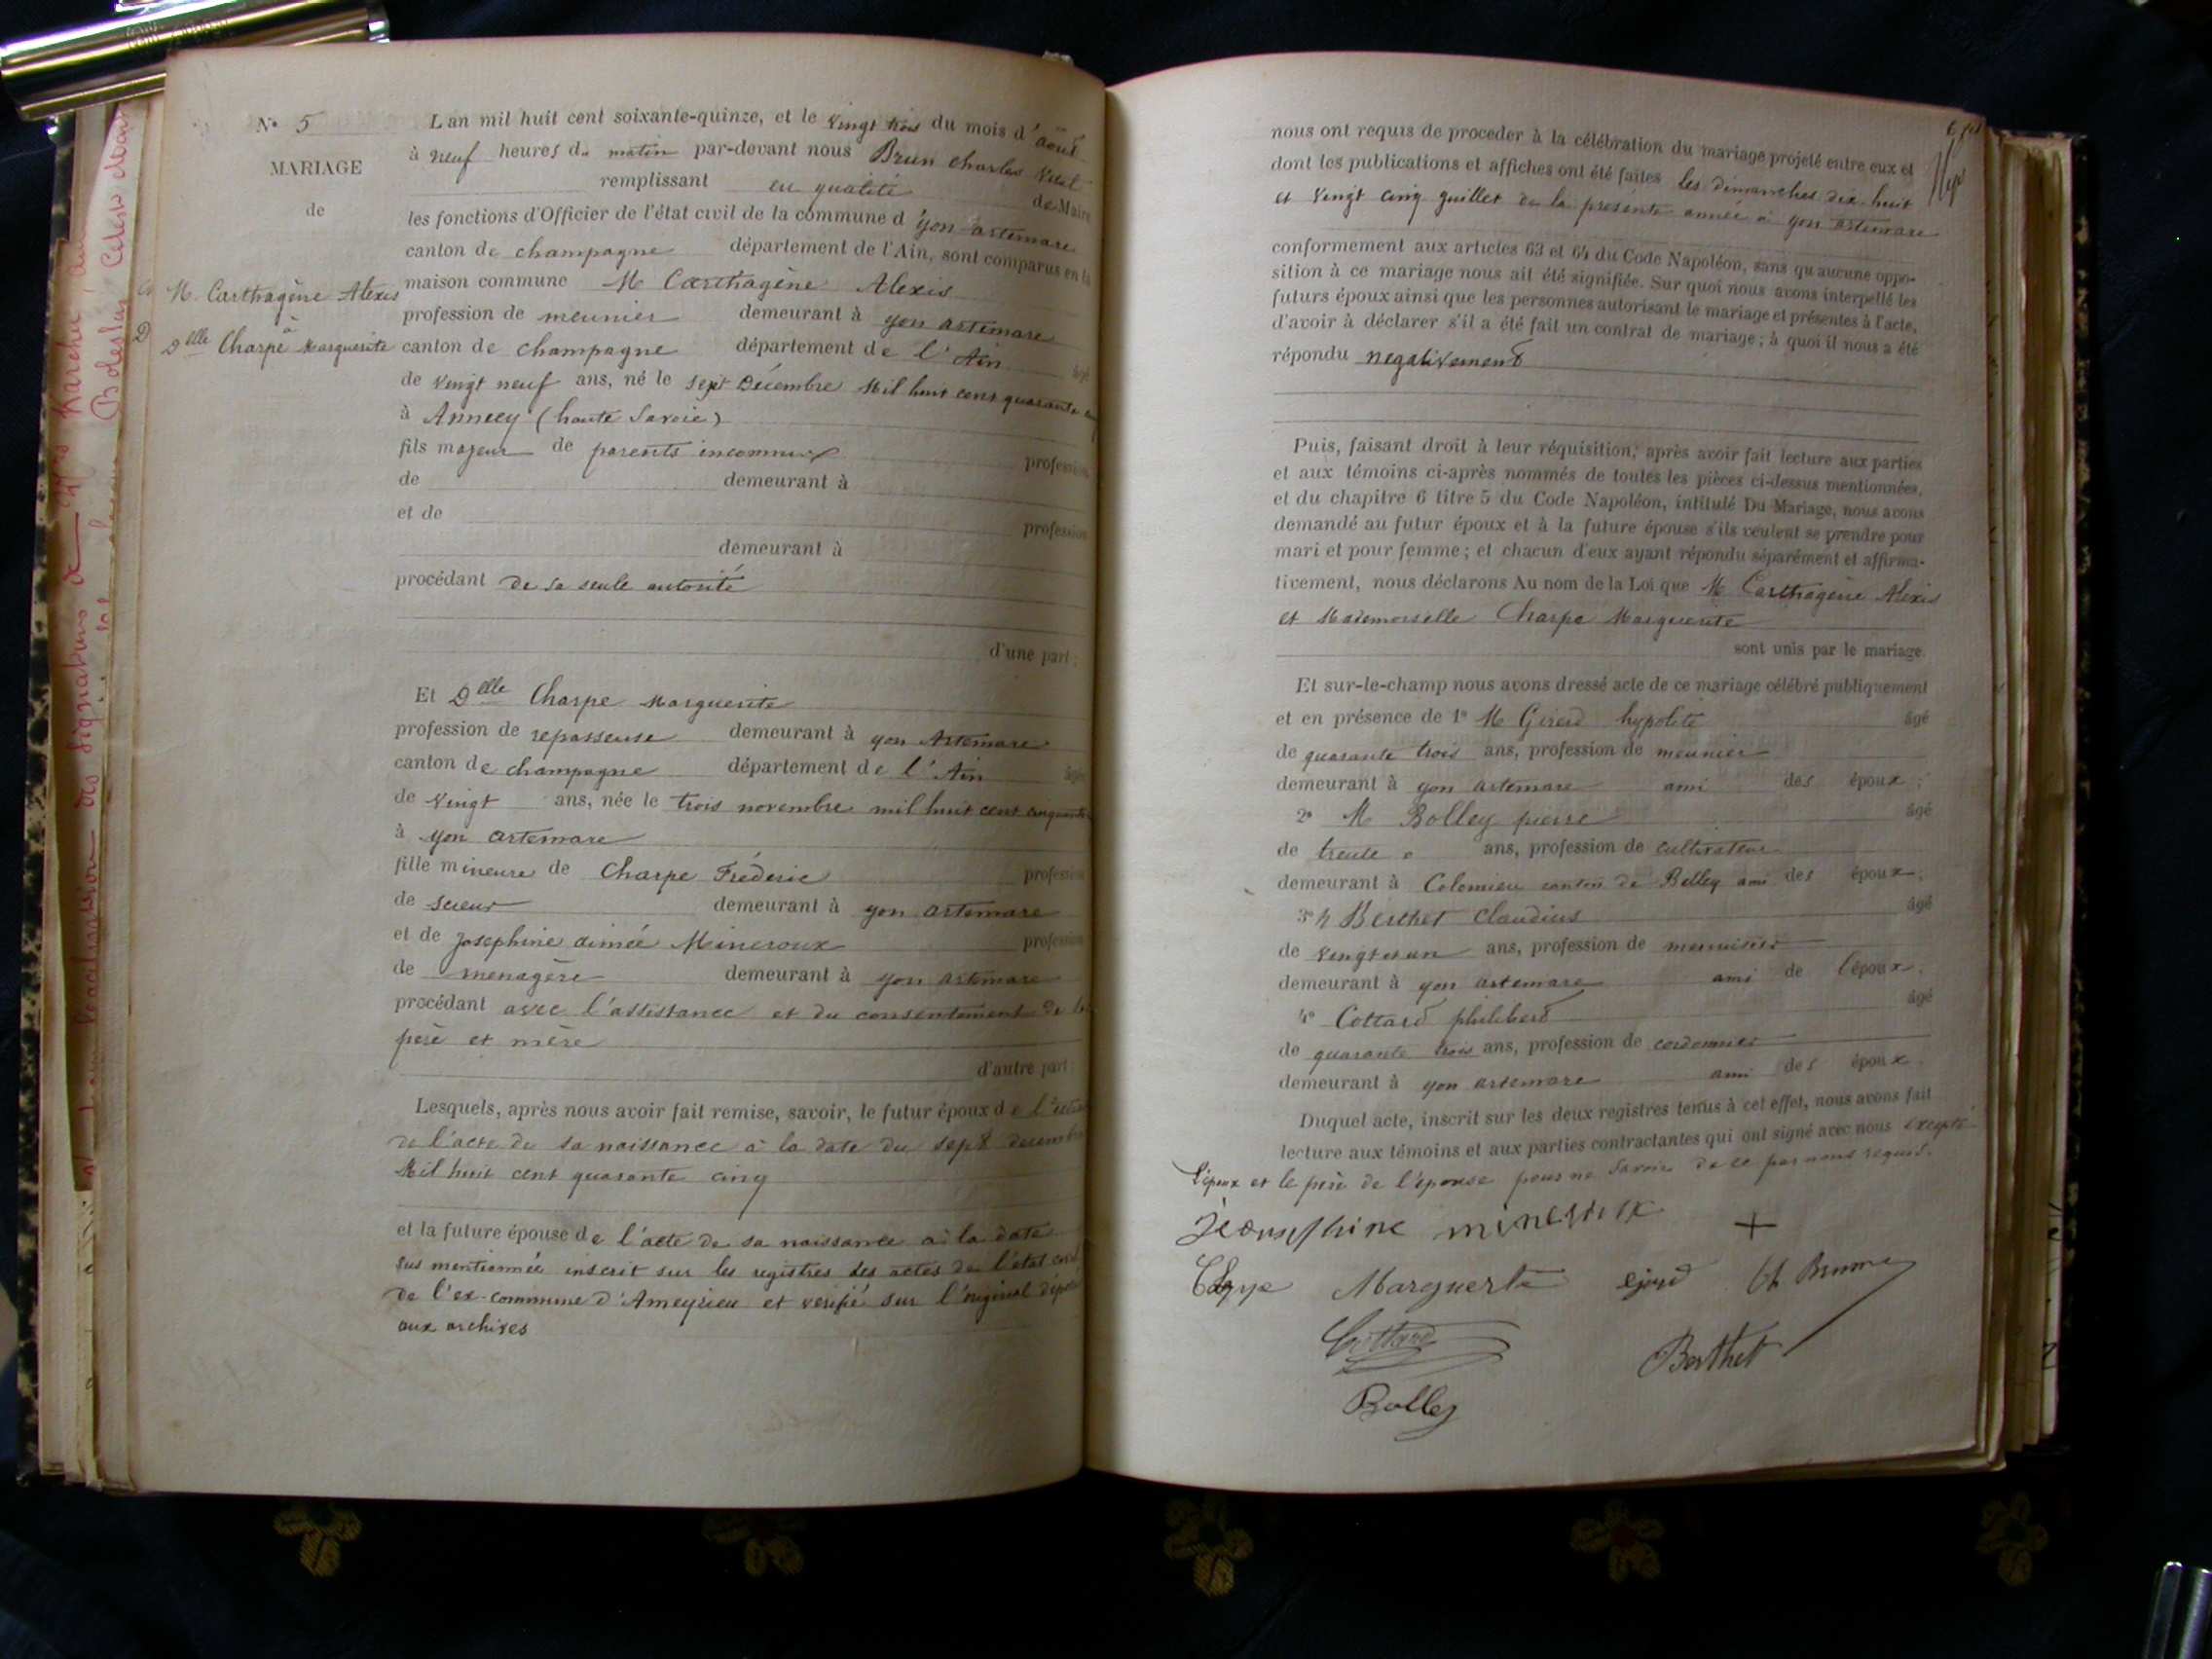 N° 5
MARIAGE
de
M. Carthagène Alexis
à
Dlle Charpe Marguerite
L'an mil huit cent soixante-quinze, et le vingt trois du mois d'août
à neuf heures du matin par-devant nous Brun Charles Vital
remplissant en qualité de Maire
les fonctions d'Officier de l'état civil de la commune d'yon artemare
canton de champagne département de l'Ain, sont comparus en la
maison commune M Carthagène Alexis
profession de meunier demeurant à yon artemare
canton de champagne département de l'Ain âgé
de vingt neuf ans, né le sept Décembre Mil huit cent quarante
à Annecy (haute Savoie)
fils majeur de parents inconnus profession
de demeurant à
et de profession
demeurant à
procédant de sa seule autorité
d'une part ;
Et Dlle Charpe Marguerite
profession de repasseuse demeurant à yon Artemare
canton de champagne département de l'Ain âgée
de vingt ans, née le trois novembre mil huit cent cinquante
à yon artemare
fille mineure de Charpe Fréderic profession
de scieur demeurant à yon artemare
et de Josephine aimée Mineroux profession
de menagère demeurant à yon artemare
procédant avec l'assistance et du consentement de
père et mère
d'autre part
Lesquels, après nous avoir fait remise, savoir, le futur époux de
de l'acte de sa naissance à la date du sept decembre
Mil huit cent quarante cinq
et la future épouse de l'acte de sa naissance à la date
sus mentionnée inscrit sur les registres des actes de l'état civil
de l'ex-commune d'Ameyzieu et verifié sur l'original déposé
aux archives
nous ont requis de proceder à la célébration du mariage projeté entre eux et
dont les publications et affiches ont été faites les dimanches dix-huit
et vingt cinq juillet de la présente année à yon artemare
conformement aux articles 63 et 64 du Code Napoléon, sans qu'aucune oppo-
sition à ce mariage nous ait été signifiée. Sur quoi nous avons interpellé les
futurs époux ainsi que les personnes autorisant le mariage et présentes à l'acte,
d'avoir à déclarer s'il a été fait un contrat de mariage ; à quoi il nous a été
répondu negativement
Puis, faisant droit à leur réquisition, après avoir fait lecture aux parties
et aux témoins ci-après nommés de toutes les pièces ci-dessus mentionnées,
et du chapitre 6 titre 5 du Code Napoléon, intitulé Du Mariage, nous avons
demandé au futur époux et à la future épouse s'ils veulent se prendre pour
mari et pour femme ; et chacun d'eux ayant répondu séparément et affirma-
tivement, nous déclarons Au nom de la Loi que M Carthagène Alexis
et Mademoiselle Charpe Marguerite
sont unis par le mariage.
Et sur-le-champ nous avons dressé acte de ce mariage célébré publiquement
et en présence de 1° M Girerd hypolite âgé
de quarante trois ans, profession de meunier
demeurant à yon artemare ami des époux ;
2° M Bolley pierre âgé
de trente ans, profession de cultivateur
demeurant à Colomieu canton de Belley ami des époux,
3° M Berthet Claudius âgé
de vingt et un ans, profession de menuisier
demeurant à yon artemare ami de l'époux,
4° Cottard philiberd âgé
de quarante trois ans, profession de cordonnier
demeurant à yon artemare ami des époux
Duquel acte, inscrit sur les deux registres tenus à cet effet, nous avons fait
lecture aux témoins et aux parties contractantes qui ont signé avec nous excepté
l'époux et le père de l'épouse pour ne savoir de ce par nous requis.
+
Marguerite
Cottard
Berthet
Bolley